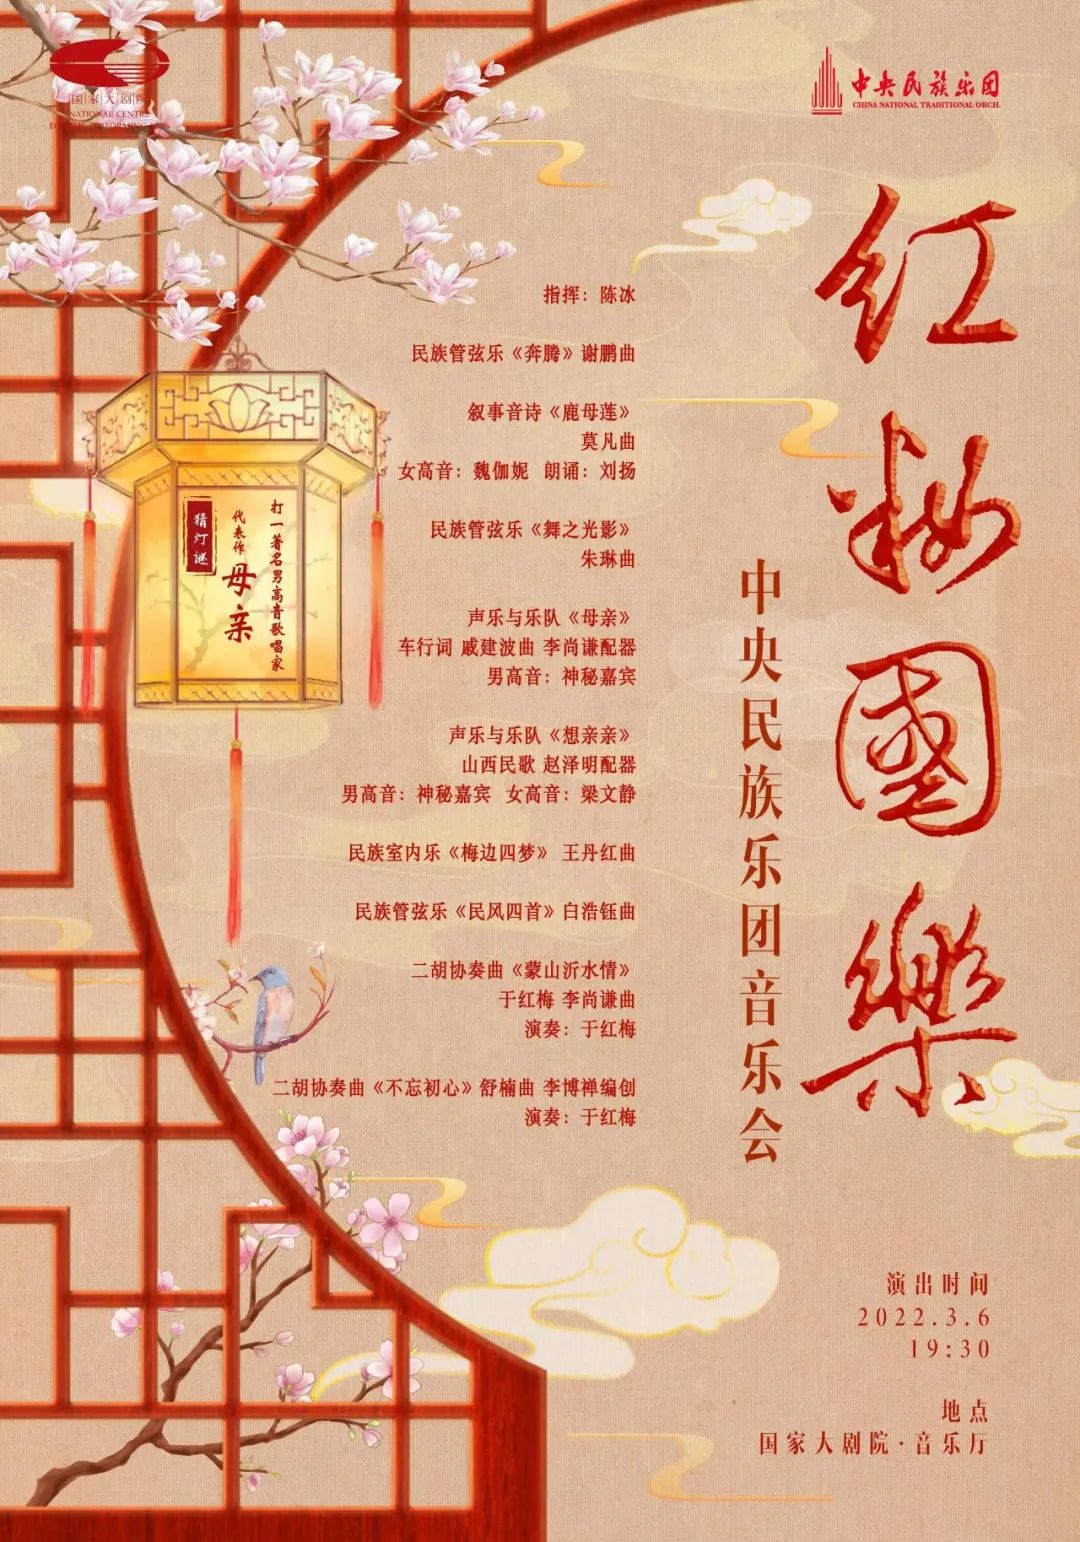 国家大剧院
NATIONAL CENTRE
中央民族乐团
CHINA NATIONAL TRADITIONAL ORCH.
红妆国乐
中央民族乐团音乐会
指挥：陈冰
民族管弦乐《奔腾》谢鹏曲
叙事音诗《鹿母莲》
莫凡曲
女高音：魏伽妮 朗诵：刘扬
民族管弦乐《舞之光影》
朱琳曲
声乐与乐队《母亲》
车行词 戚建波曲 李尚谦配器
男高音：神秘嘉宾
声乐与乐队《想亲亲》
山西民歌 赵泽明配器
男高音：神秘嘉宾 女高音：梁文静
民族室内乐《梅边四梦》 王丹红曲
民族管弦乐《民风四首》白浩钰曲
二胡协奏曲《蒙山沂水情》
于红梅 李尚谦曲
演奏：于红梅
二胡协奏曲《不忘初心》舒楠曲 李博禅编创
演奏：于红梅
猜灯谜
打一著名男高音歌唱家
代表作
母亲
演出时间
2022.3.6
19:30
地点
国家大剧院·音乐厅